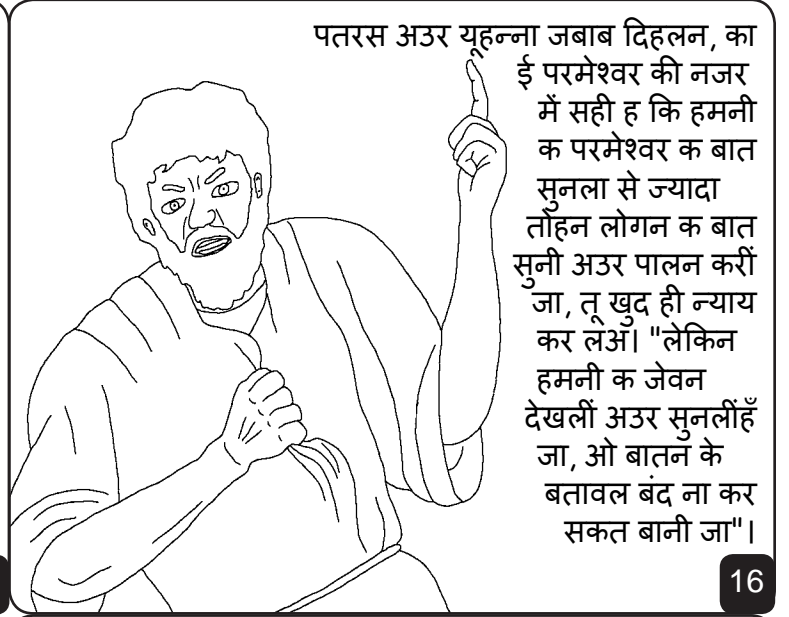 पतरस अउर यूहन्ना जबाब दिहलन, का
ई परमेश्वर की नजर
में सही ह कि हमनी
क परमेश्वर क बात
सुनला से ज्यादा
तोहन लोगन क बात
सुनी अउर पालन करीं
जा, तू खुद ही न्याय
कर लअ। "लेकिन
हमनी क जेवन
देखलीं अउर सुनलींहँ
जा, ओ बातन के
बतावल बंद ना कर
सकत बानी जा"।
16